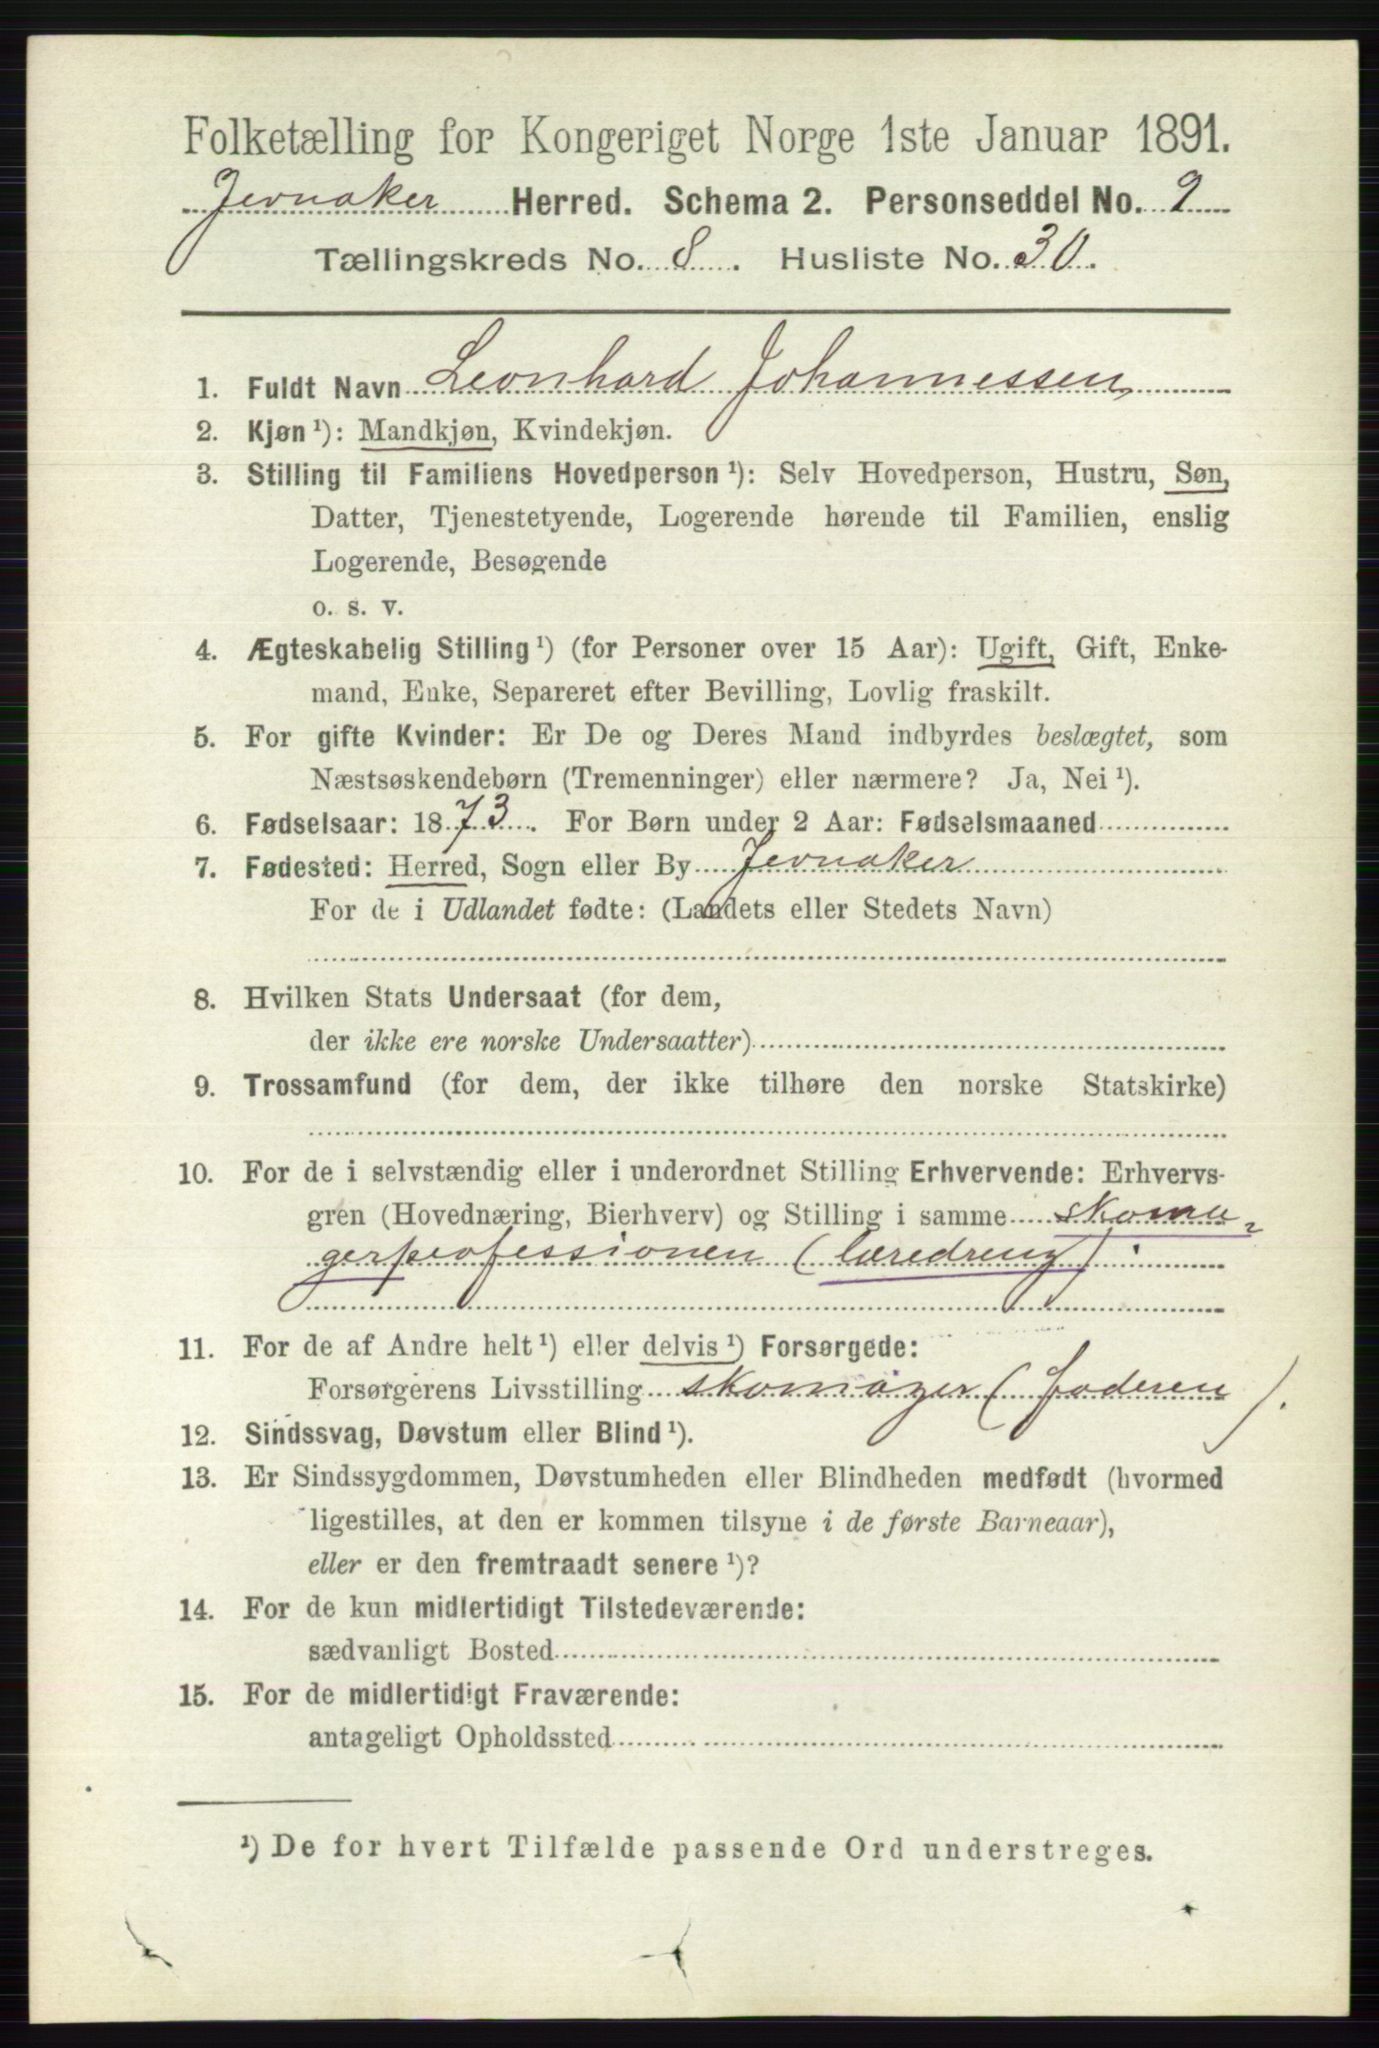 Folketælling for Kongeriget Norge 1ste Januar 1891.
Jevnaker Herred. Schema 2. Personseddel No. 9
Tællingskreds No. 8. Husliste No. 30.
1. Fuldt Navn Leonhard Johannessen
2. Kjøn ¹): Mandkjøn, Kvindekjøn.
3. Stilling til Familiens Hovedperson ¹): Selv Hovedperson, Hustru, Søn,
Datter, Tjenestetyende, Logerende hørende til Familien, enslig
Logerende, Besøgende
o. s. v.
4. Ægteskabelig Stilling ¹) (for Personer over 15 Aar): Ugift, Gift, Enke-
mand, Enke, Separeret efter Bevilling, Lovlig fraskilt.
5. For gifte Kvinder: Er De og Deres Mand indbyrdes beslægtet, som
Næstsøskendebørn (Tremenninger) eller nærmere? Ja, Nei ¹).
6. Fødselsaar: 1873. For Børn under 2 Aar: Fødselsmaaned
7. Fødested: Herred, Sogn eller By Jevnaker
For de i Udlandet fødte: (Landets eller Stedets Navn)
8. Hvilken Stats Undersaat (for dem,
der ikke ere norske Undersaatter)
9. Trossamfund (for dem, der ikke tilhøre den norske Statskirke)
10. For de i selvstændig eller i underordnet Stilling Erhvervende: Erhvervs-
gren (Hovednæring, Bierhverv) og Stilling i samme skoma-
gerprofessionen (læredreng).
11. For de af Andre helt ¹) eller delvis ¹) Forsørgede:
Forsørgerens Livsstilling skomager (faderen).
12. Sindssvag, Døvstum eller Blind ¹).
13. Er Sindssygdommen, Døvstumheden eller Blindheden medfødt (hvormed
ligestilles, at den er kommen tilsyne i de første Barneaar),
eller er den fremtraadt senere ¹)?
14. For de kun midlertidigt Tilstedeværende:
sædvanligt Bosted
15. For de midlertidigt Fraværende:
antageligt Opholdssted
¹) De for hvert Tilfælde passende Ord understreges.